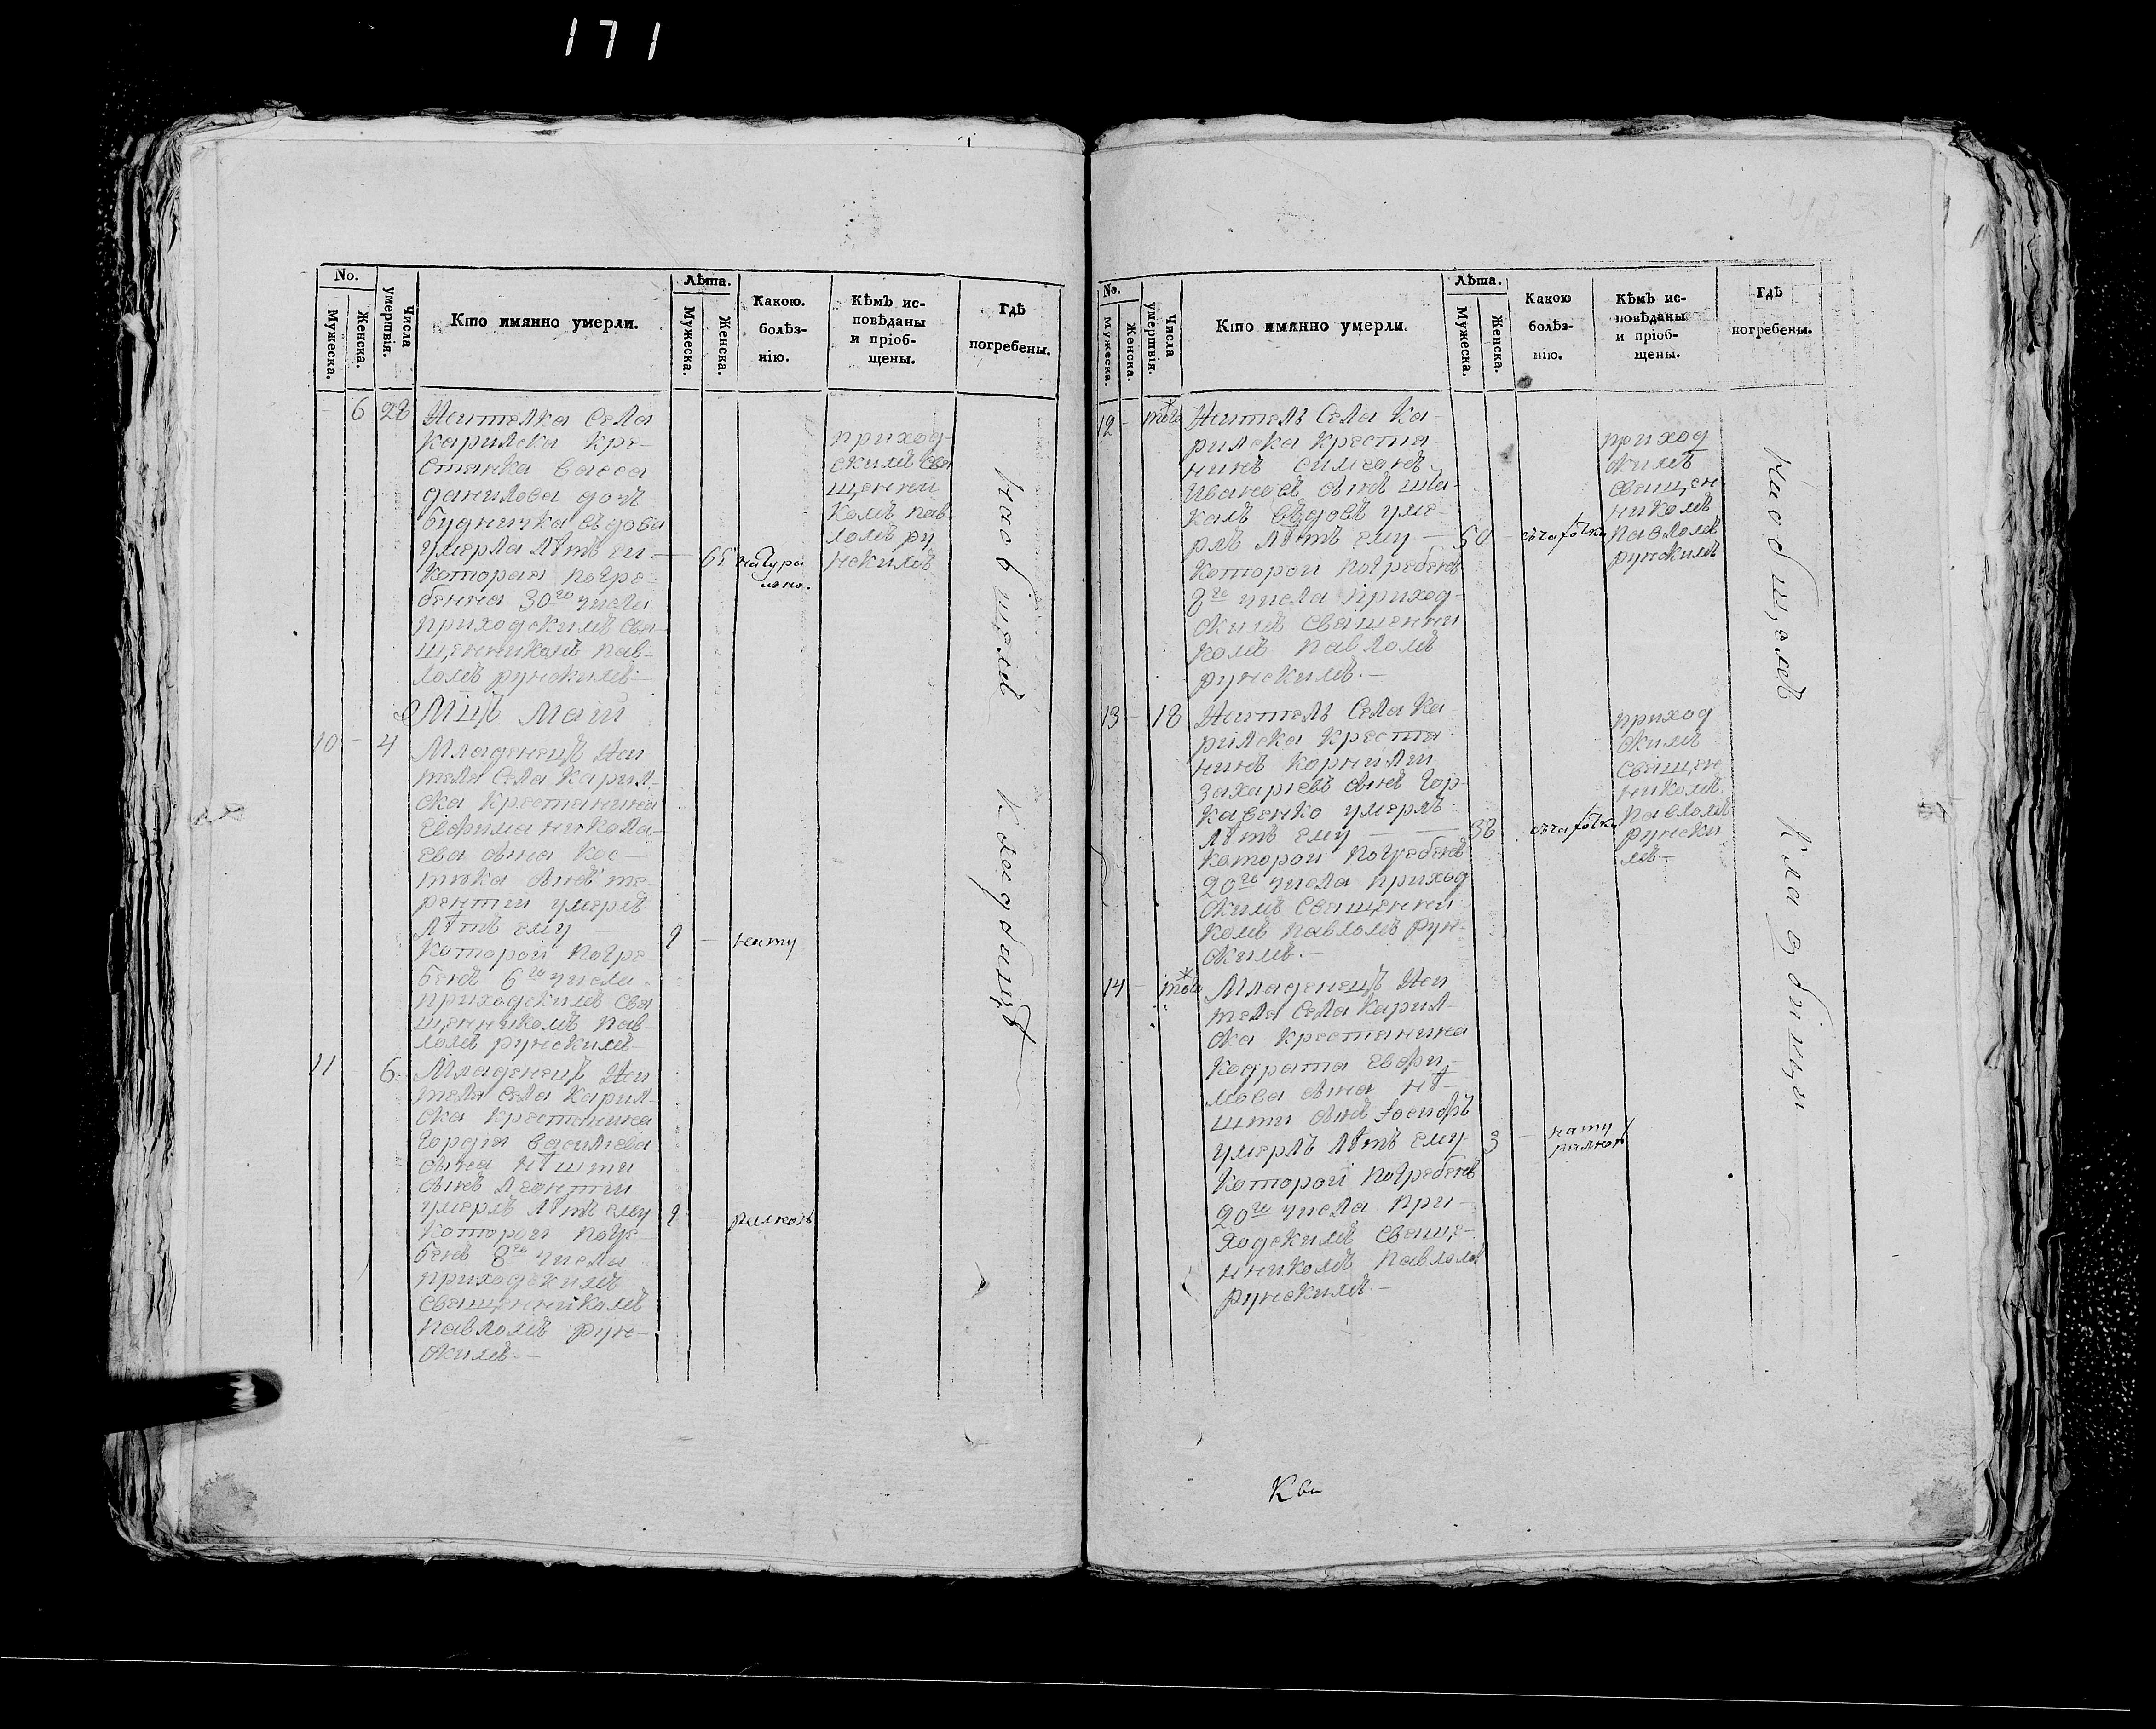 171
No.
Мужеска.
Женска.
Числа умертвія.
Кто имянно умерли.
Лѣта.
Мужеска.
Женска.
Какою. болѣз- нію.
Кѣмъ ис- повѣданы и пріоб- щены.
Гдѣ погребены.
6 28
Жителка Села
Карилска Кре-
стянка Васса
данилова дочь
будничка вѣдова
умерла лѣтъ ей — 65
Которая погре-
бенна 30го числа
приходскимъ свя-
щенникомъ Пав-
ломъ рунскимъ.—
натура
лно.
приход-
скимъ свя
щенни
комъ пав-
ломъ ру
нскимъ
Мцъ Маій
10 - 4
Младенецъ Жи
теля Села Карил-
ска Крестянина
Евфима никола-
ева сына Кос-
тюка сынъ те-
рентій умеръ
лѣтъ ему — 2 - нату
Которой погре
бенъ 6го числа
приходскимъ свя
щенникомъ Пав-
ломъ рунскимъ
11 6
Младенецъ Жи
теля Села Карил-
ска Крестянина
Гордѣя Василіева
сына
сынъ Леонтій
умеръ лѣтъ ему 2 -
Которой погре
бенъ 8го числа
приходскимъ
священникомъ
Павломъ рун-
скимъ.—
на общемъ кладбищѣ
No.
Мужеска.
Женска.
Числа умертвія.
Кто имянно умерли.
Лѣта.
Мужеска.
Женска.
Какою болѣз- нію.
Кѣмъ ис- повѣданы и пріоб- щены.
Гдѣ погребены.
12 - тогож
Житель Села Ка-
рилска Крестя-
нинъ симеонъ
Ивановъ сынъ
вѣдовъ уме-
ръ лѣтъ ему — 50 -
Которой погребенъ
8го числа приход-
скимъ священни
комъ Павломъ
рунскимъ.—
приход
скимъ
священ
никомъ
Павломъ
рунскимъ
13 - 18
Житель Села Ка
рилска Крестя
нинъ Корнилій
Захаріевъ сынъ Гор-
кавенко умеръ
лѣтъ ему — 38
Которой погребенъ
20го числа приход
скимъ священни
комъ Павломъ Рун-
скимъ.—
приход
скимъ
священ
никомъ
Павломъ
Рунски
мъ—
14 - тогож
Младенецъ Жи
теля Села Карил-
ска Крестянина
Кодрата Евфи-
мова сына
умеръ лѣтъ ему 3 -
Которой погребенъ
20го числа при-
ходскимъ свяще-
нникомъ Павломъ
рунскимъ.—
на общемъ кладбищи